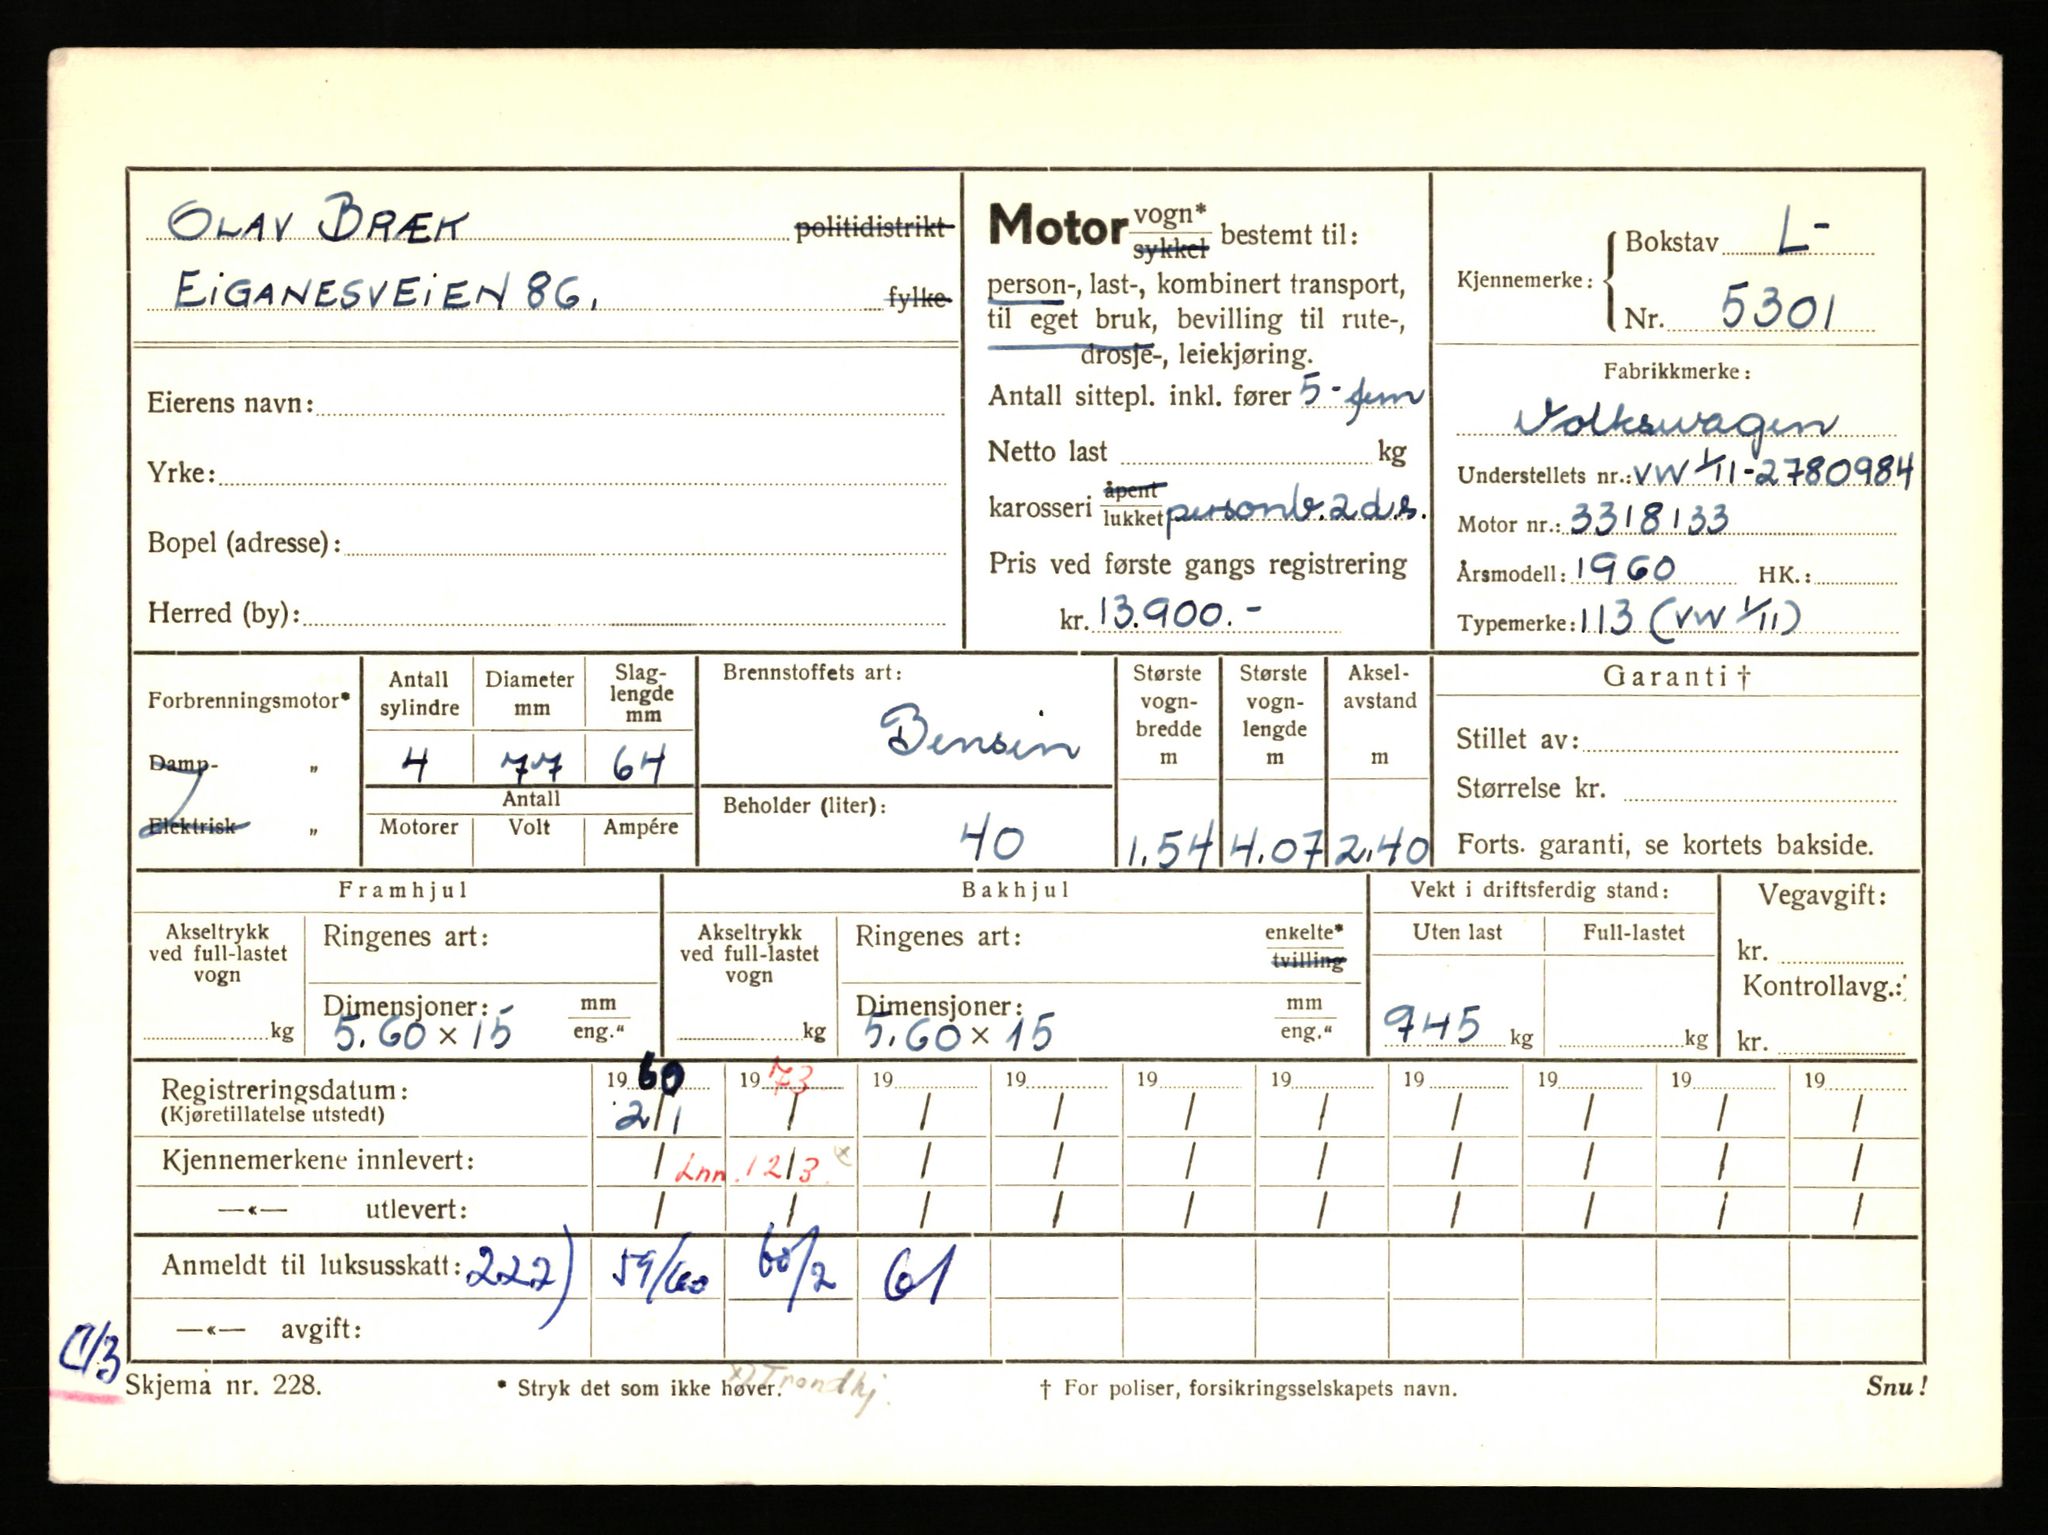 OLAV BRÆK politidistrikt
EIGANESVEIEN 86. fylke
Eierens navn:
Yrke:
Bopel (adresse):
Herred (by):
Motor vogn* sykkel bestemt til:
person-, last-, kombinert transport,
til eget bruk, bevilling til rute-,
drosje-, leiekjøring.
Antall sittepl. inkl. fører 5 - fem
Netto last kg
karosseri åpent lukket personb. 2 d.s.
Pris ved første gangs registrering
kr. 13.900.-
Kjennemerke: Bokstav L-
Nr. 5301
Fabrikkmerke:
Volkswagen
Understellets nr.: VW 1/11-2780984
Motor nr.: 3318133
Årsmodell: 1960 HK.:
Typemerke: 113 (VW 1/11)
Forbrenningsmotor*
Damp- „
Elektrisk „
Antall sylindre
4
Diameter mm
77
Slag-
lengde
mm
64
Antall
Motorer Volt Ampére
Brennstoffets art:
Bensin
Beholder (liter):
40
Største
vogn-
bredde
m
1.54
Største
vogn-
lengde
m
4.07
Aksel-
avstand
m
2.40
Garanti †
Stillet av:
Størrelse kr.
Forts. garanti, se kortets bakside.
Framhjul
Akseltrykk
ved full-lastet
vogn
kg
Ringenes art:
Dimensjoner: mm eng."
5.60 x 15
Bakhjul
Akseltrykk
ved full-lastet
vogn
kg
Ringenes art: enkelte* tvilling
Dimensjoner: mm eng."
5.60 x 15
Vekt i driftsferdig stand:
Uten last Full-lastet
745 kg kg
Vegavgift:
kr.
Kontrollavg.:
kr.
Registreringsdatum: 1960 1973 19 19 19 19 19 19 19 19
(Kjøretillatelse utstedt) 2/1 / / / / / / / / /
Kjennemerkene innlevert: / Inn. 12/3 x / / / / / / / /
—«— utlevert: / / / / / / / / / /
Anmeldt til luksusskatt: 222) 59/60 60/2 61
—«— avgift:
Skjema nr. 228. * Stryk det som ikke høver. x) Trondhj. † For poliser, forsikringsselskapets navn. Snu!